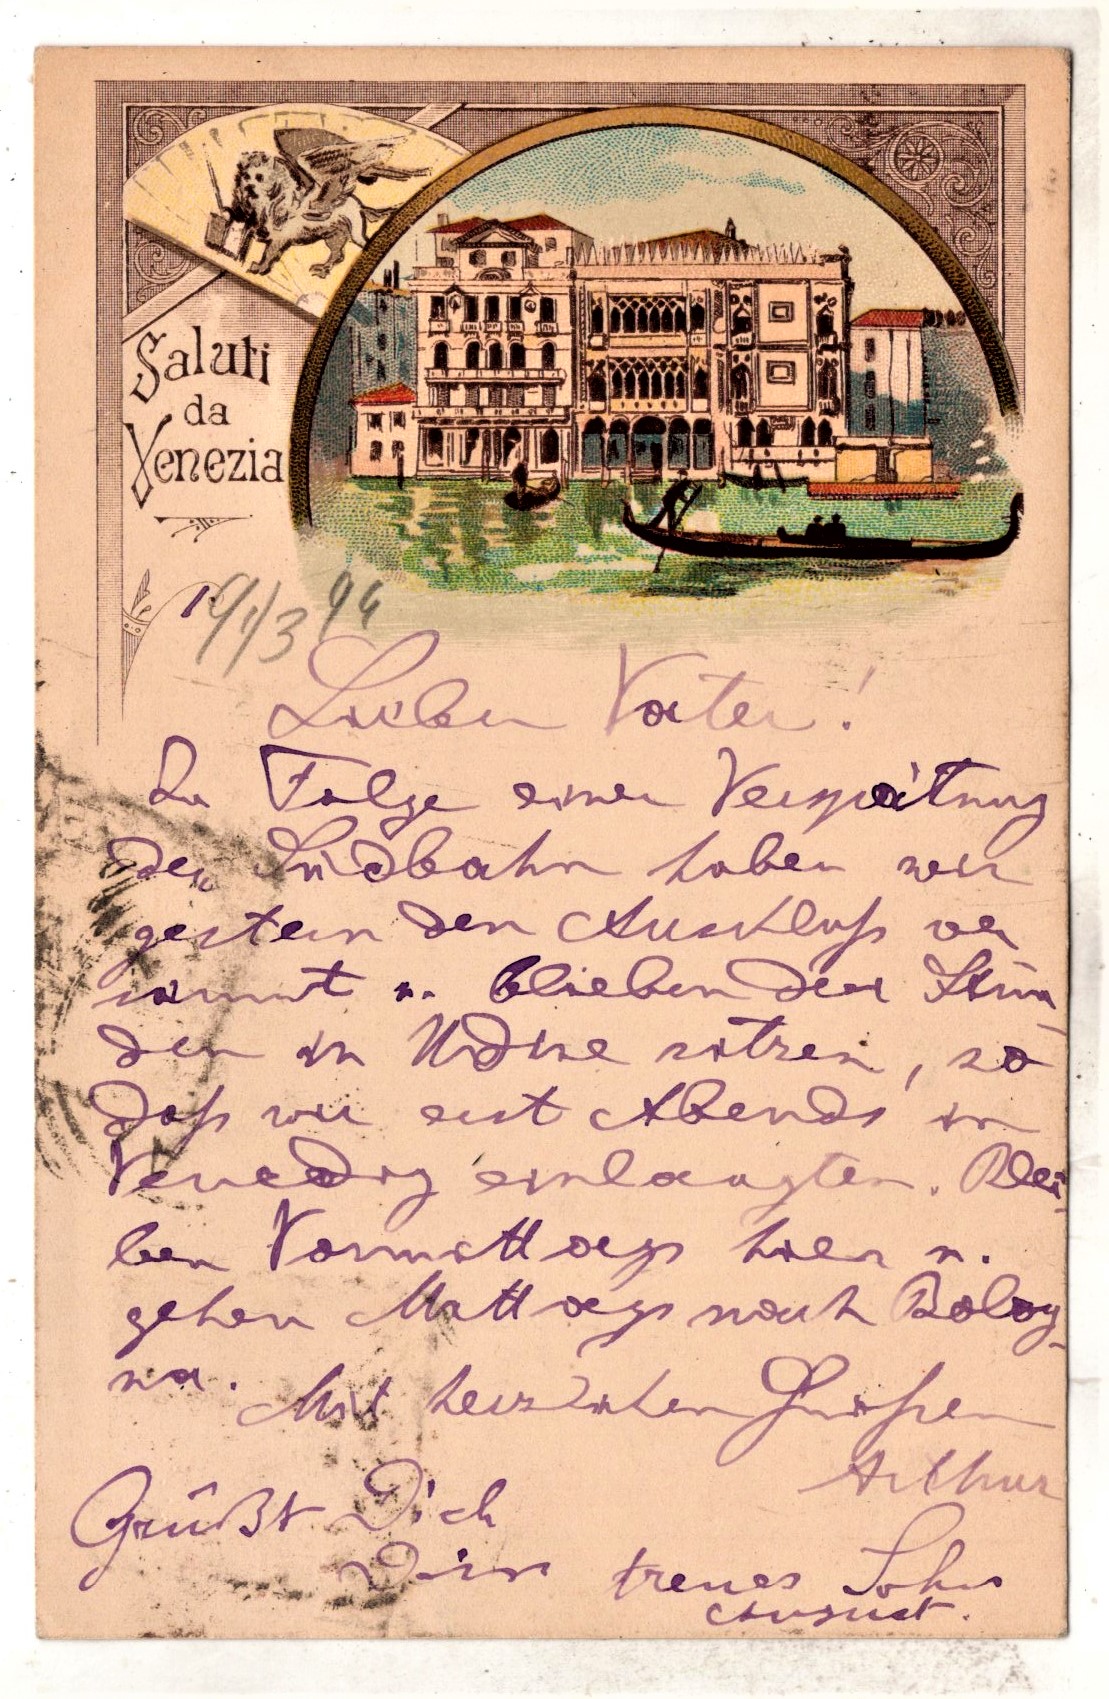 Saluti
da
Venezia
19/3 94
Lieber Vater!
In Folge einer Verspätung
der Südbahn haben wir
gestern den Anschluß ver
säumt u. blieben drei Stun
den in Udine sitzen, so
daß wir erst Abends in
Venedig einlangten. Blei-
ben Vormittags hier u.
gehen Mittags nach Bolog-
na.
Mit herzlichen Grüßen
Arthur
Grüßt Dich
Dein treues Sohn
August.